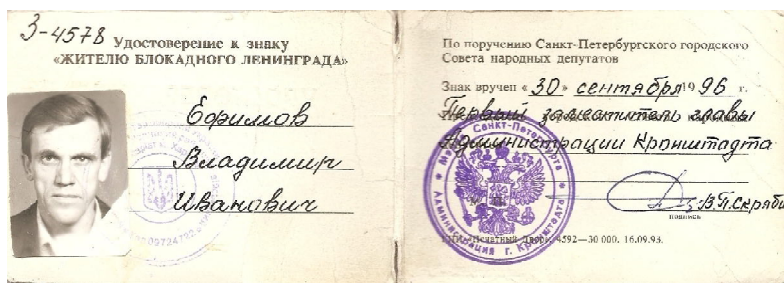 З-4578 Удостоверение к знаку
«ЖИТЕЛЮ БЛОКАДНОГО ЛЕНИНГРАДА»
Ефимов
Владимир
Иванович
По поручению Санкт-Петербургского городского
Совета народных депутатов
Знак вручен «30» сентября 1996 г.
Первый заместитель главы
Администрации Кронштадта
В.П.Скряби
подпись
Печатный Двор. 4592—30 000. 16.09.93.
Санкт-Петербурга
Администрация г. Кронштадта